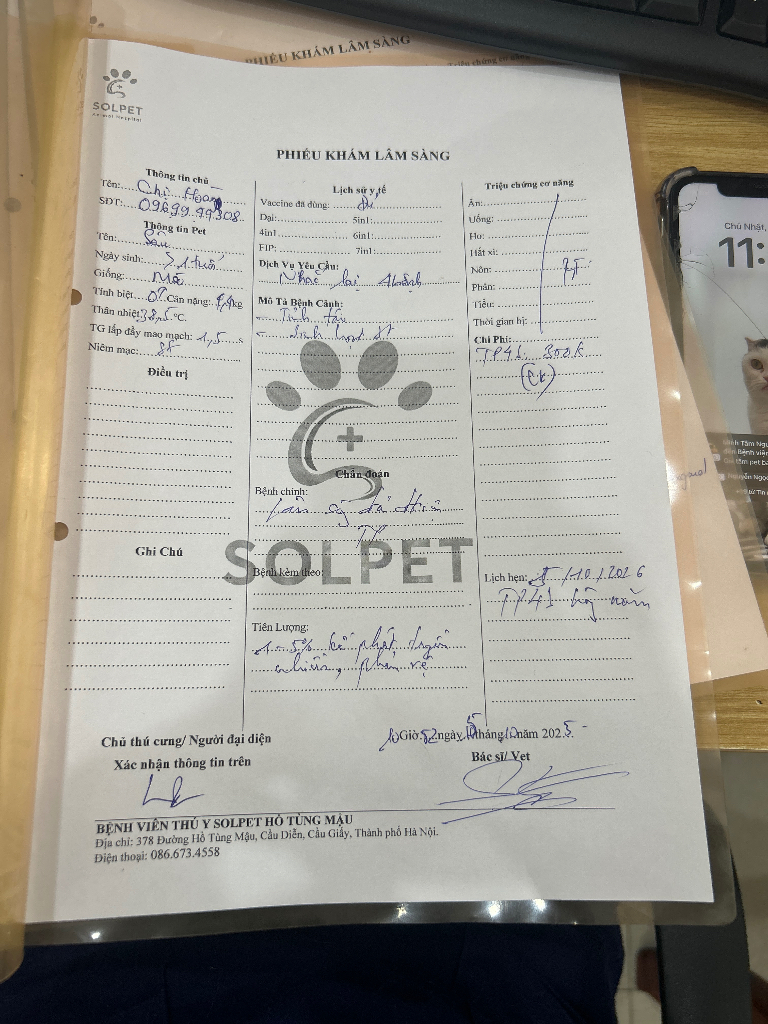 PHIẾU KHÁM LÂM SÀNG
SOLPET
Animal Hospital
PHIẾU KHÁM LÂM SÀNG
Thông tin chủ
Tên: Chị Hoan
SĐT: 0969949308
Thông tin Pet
Tên: Sâu
Ngày sinh: >1 tuổi
Giống: Mèo
Tính biệt: Cân nặng: kg
Thân nhiệt: 38,5 °C.
TG lấp đầy mao mạch: 1,5 s
Niêm mạc:
Điều trị
Ghi Chú
Lịch sử y tế
Vaccine đã dùng: đủ
Dại: 5in1:
4in1 6in1:
FIP: 7in1:
Dịch Vụ Yêu Cầu:
Nhắc lại
Mô Tả Bệnh Cảnh:
- Tỉnh táo
Chẩn đoán
Bệnh chính:
SOLPET
Bệnh kèm theo:
Tiên Lượng:
1-5%
phản vệ
Triệu chứng cơ năng
Ăn:
Uống:
Ho:
Hắt xì:
Nôn:
Phân:
Tiểu:
Thời gian bị:
Chi Phí:
TP41 300k
(CK)
Lịch hẹn: 5/10/2026
TP41 hằng năm
Chủ thú cưng/ Người đại diện
Xác nhận thông tin trên
10 Giờ 52 ngày 5 tháng 10 năm 2025
Bác sĩ/ Vet
BỆNH VIỆN THÚ Y SOLPET HỒ TÙNG MẬU
Địa chỉ: 378 Đường Hồ Tùng Mậu, Cầu Diễn, Cầu Giấy, Thành phố Hà Nội.
Điện thoại: 086.673.4558
Chủ Nhật,
11: